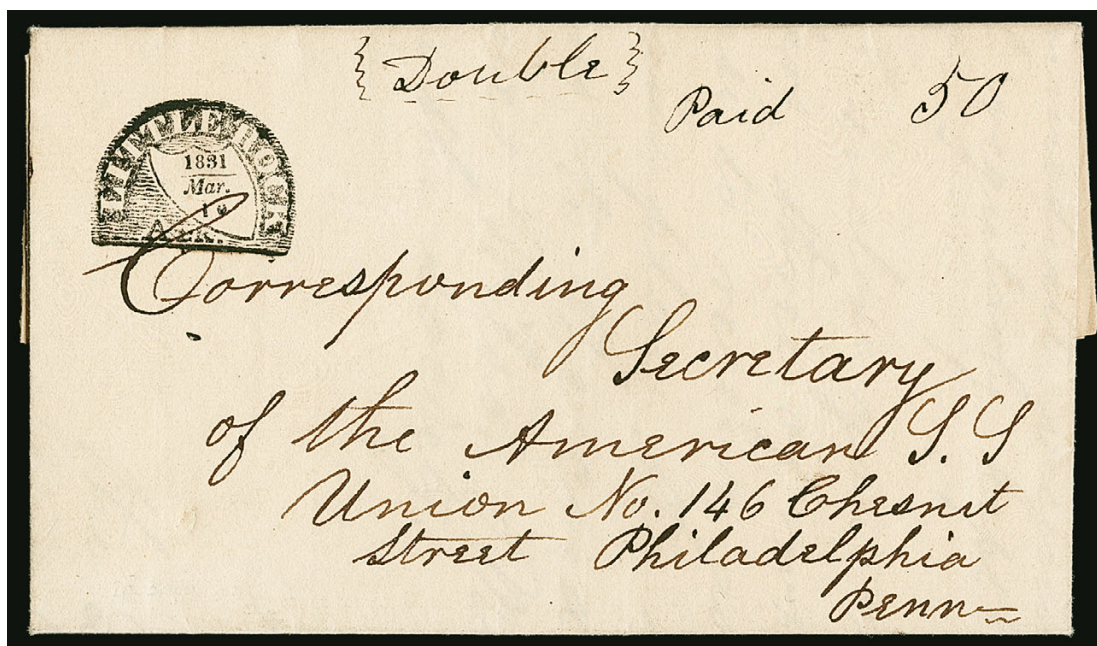 {Double}
Paid 50
LITTLE ROCK
1831
Mar.
ARK.
Corresponding
Secretary
of the American S. S
Union No. 146 Chesnut
Street Philadelphia
Penn